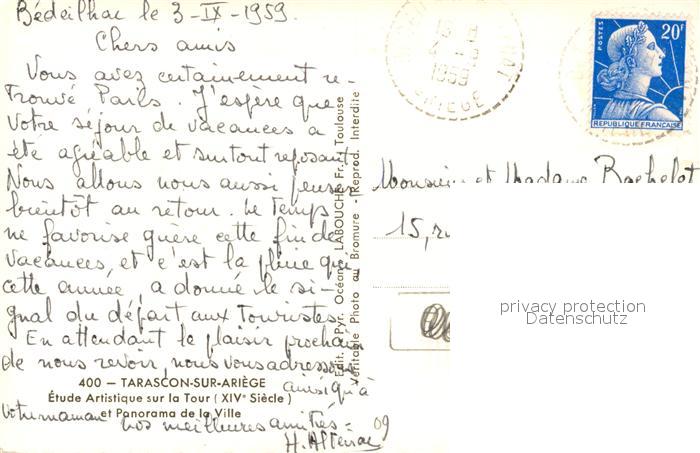 Bédeilhac le 3-IX-1959.
Chers amis
Vous avez certainement re-
trouvé Paris. J'espère que
votre séjour de vacances a
été agréable et surtout reposant.
Nous allons nous aussi penser
bientôt au retour. Le temps
ne favorise guère cette fin de
vacances, et c'est la pluie qui
cette année, a donné le si-
gnal du départ aux Touristes.
En attendant le plaisir prochain
de nous revoir, nous vous adressons
ainsi qu'à
votre maman nos meilleures amitiés =
400 — TARASCON-SUR-ARIÈGE
Étude Artistique sur la Tour (XIVe Siècle)
et Panorama de la Ville
Edit. Pyr. Océan, LABOUCHE Fr., Toulouse
Véritable Photo au Bromure - Reprod. Interdite
1959
ARIEGE
POSTES
20F
REPUBLIQUE FRANÇAISE
Monsieur et Madame Bachelot
15,
privacy protection
Datenschutz
09